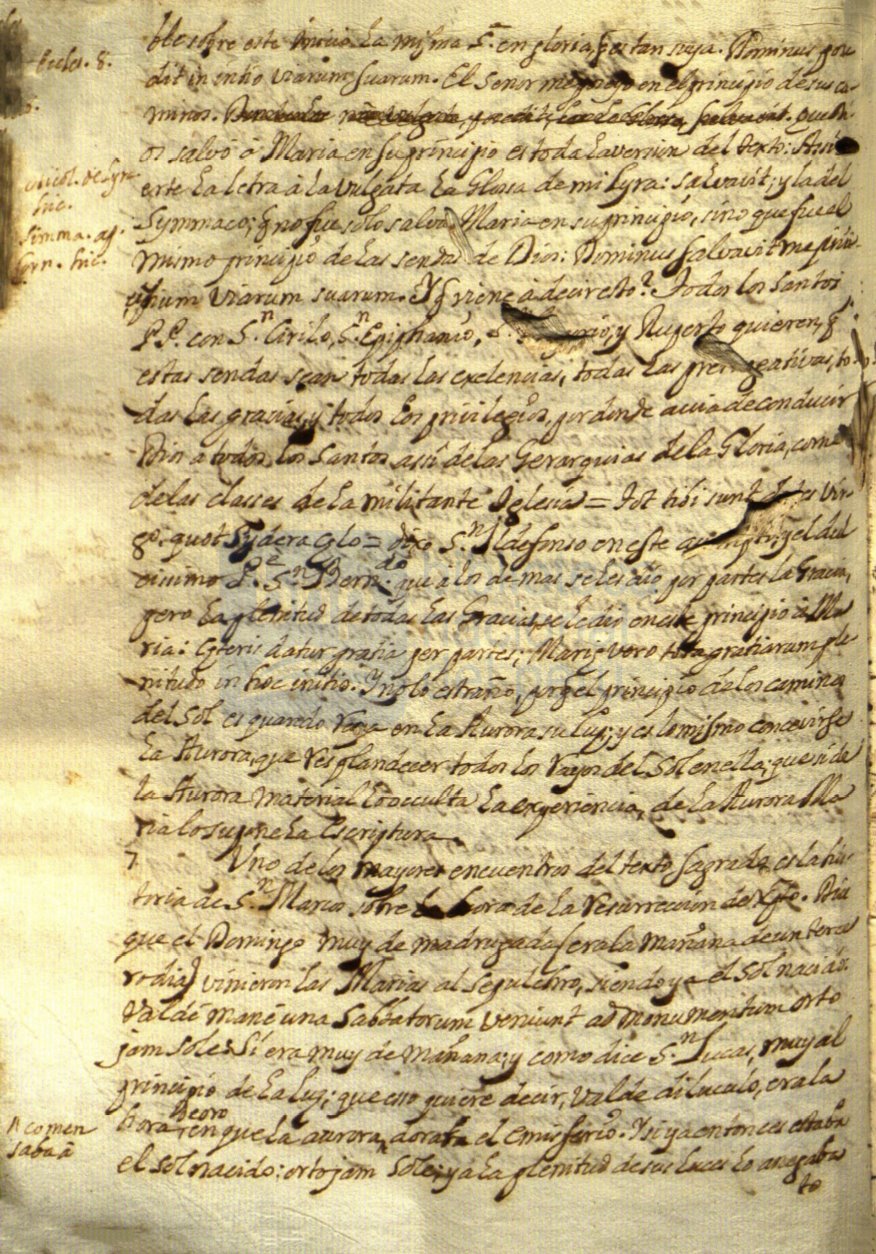 ble sobre este inicio la misma S.ra en gloria, q es tan suya. Dominus posse
dit in initio viarum suarum. El Señor me en el principio de sus ca-
minos. que Di-
os salvó á Maria en su principio es toda la version del texto: Assi
Eccles. 8.
erte la letra á la vulgata la Glosa de mi Lyra: salvavit; y la del
Nicol. de Lyr.
hic.
Symmaco; q no fue solo salva Maria en su principio, sino que fue el
Simma. ap.
Corn. hic.
mismo principio de las sendas de Dios: Dominus salvavit me prin-
cipium viarum suarum. Y q viene á decir esto? Todos los Santos
P.P. con S.n Cirilo, S.n Epiphanio, y Ruperto quieren, q
estas sendas sean todas las exelencias, todas las prerrogativas, to-
das las gracias, y todos los privilegios, por donde avia de conducir
Dios a todos los Santos assi de las Gerarquias de la Gloria, como
de las classes de la militante Iglesia = Tot tibi sunt dotes vir-
go, quot sydera cælo = dixo S.n Ildefonso en este y el dul
cissimo P.e S.n Bern.do que á los demas se les dio por partes la Gracia,
pero la plenitud de todas las Gracias, se le dio en este principio á Ma
ria: Cæteris datur gratia per partes; Mariæ vero tota gratiarum ple
nitudo in hoc initio. Y no lo estraño, porq el principio de los caminos
del Sol es quando raya en la Aurora su luz; y es lo mismo concevirse
la Aurora, que resplandecer todos los rayos del Sol en ella; que si de
la Aurora material lo oculta la experiencia, de la Aurora Ma
ria lo supone la Escriptura.
7. Uno de los mayores encuentros del texto sagrado es la his-
toria de S.n Marcos sobre la hora de la Resurreccion de Xpto. Dice
que el Domingo muy de madrugada (era la mañana de un terce
ro dia) vinieron las Marias al sepulchro, siendo ya el Sol nacido:
Valde mane una Sabbatorum veniunt ad monumentum orto
jam sole: Si era muy de mañana; y como dice S.n Lucas, muy al
principio de la luz; que esso quiere decir, valde diluculo, era la
hora, en que la aurora, dora el emisferio. Y si ya entonces estaba
A comen
saba á
el sol nacido: orto jam sole; ya la plenitud de sus luces lo anegaba
to